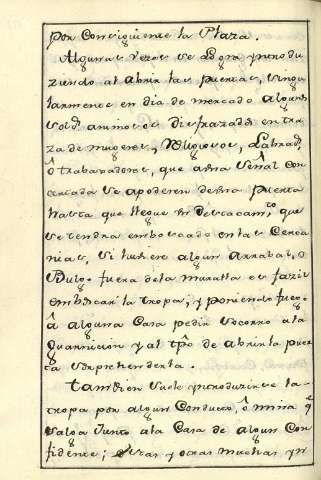 por Consiguiente la Plaza.
Algunas vezes se logra yntrodu
ziendo al abrir las puertas, singu
larmente en dia de mercado algunos
sold.s animosos disfrazados en tra
za de mugeres, Religiosos, Labrad.s
ô travajadores, que a una señal con
certada se apoderen de una puerta
hasta que llegue un Destacam.to que
se tendra emboscado en las Cerca
nias, si tuviere algun Arrabal, o
Burgo fuera de la muralla es facil
emboscar la tropa, y poniendo fuego
â alguna Casa pedir socorro a la
guarnicion y al tpô de abrir la puer
ta sorprehenderla.
Tambien suele yntroduzirse la
tropa por algun Conducto, ô mina q
salga Junto a la Casa de algun Con
fidente; otras y otras muchas yn